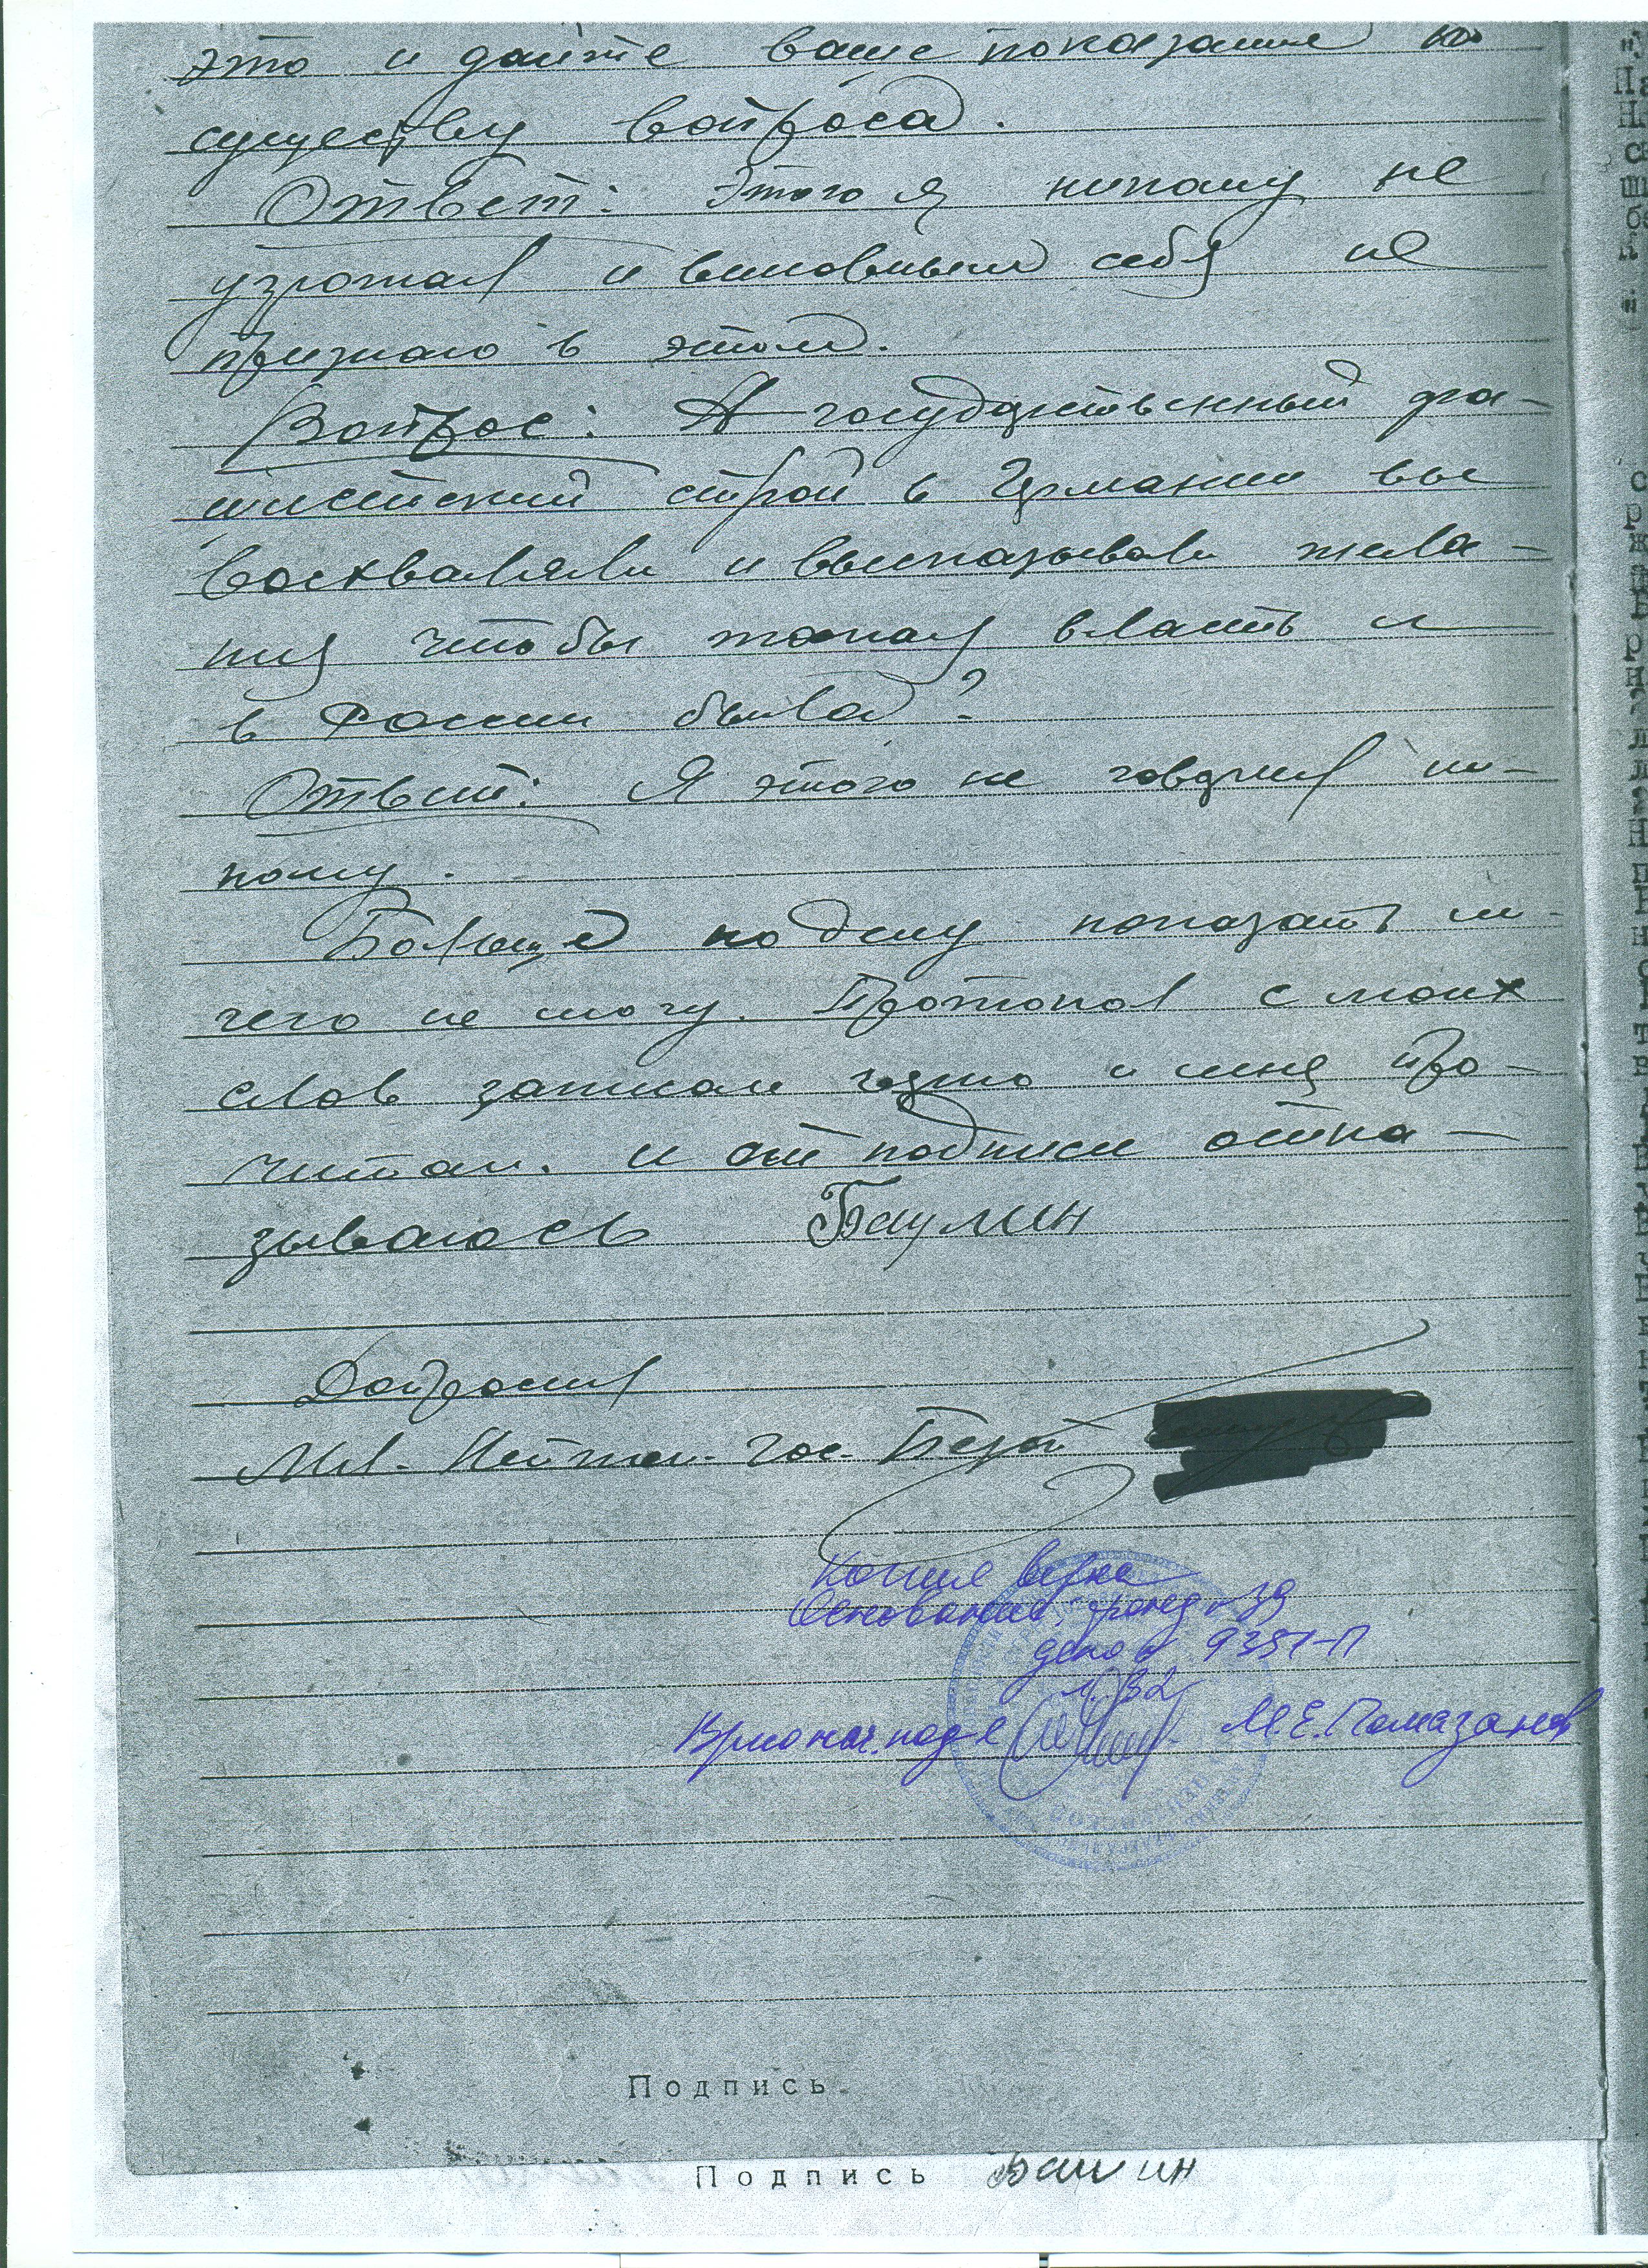 это и дайте ваше показание по
существу вопроса.
Ответ: Этого я никому не
угрожал и виновным себя не
признаю в этом.
Вопрос: А государственный фа-
шистский строй в Германии вы
восхваляли и высказывали жела-
ния чтобы такая власть и
в России была?
Ответ: Я этого не говорил ни-
кому.
Больше по делу показать ни-
чего не могу. Протокол с моих
слов записан верно и мне про-
читан. и от подписи отка-
зываюсь Баулин
Допросил
Мл. Лейтен. Гос. Безоп
Копия верна
Основание: фонд
дело 9351-П
л. 32
Врио нач. под-я М.Е. Помазанов
Подпись
Подпись Баулин